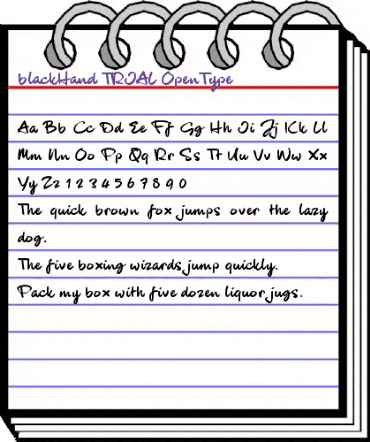 blackHand TRIAL OpenType
Aa Bb Cc Dd Ee Ff Gg Hh Ii Jj Kk Ll
Mm Nn Oo Pp Qq Rr Ss Tt Uu Vv Ww Xx
Yy Zz 1 2 3 4 5 6 7 8 9 0
The quick brown fox jumps over the lazy
dog.
The five boxing wizards jump quickly.
Pack my box with five dozen liquor jugs.